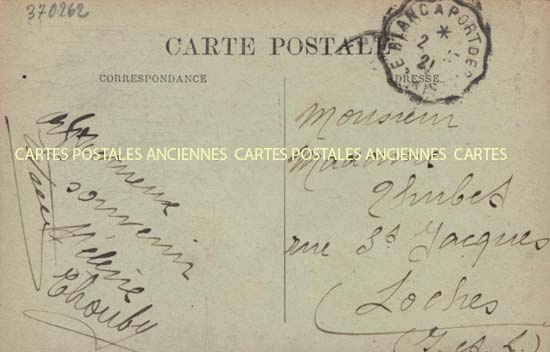 370262
CARTE POSTALE
LE BLANC A PORT DE P
2
21
CORRESPONDANCE
ADRESSE
Affectueux
souvenir
Hélène
Thouby
Monsieur
Madame
Thubet
rue St Jacques
Loches
(I. et L.)
CARTES POSTALES ANCIENNES CARTES POSTALES ANCIENNES CARTES